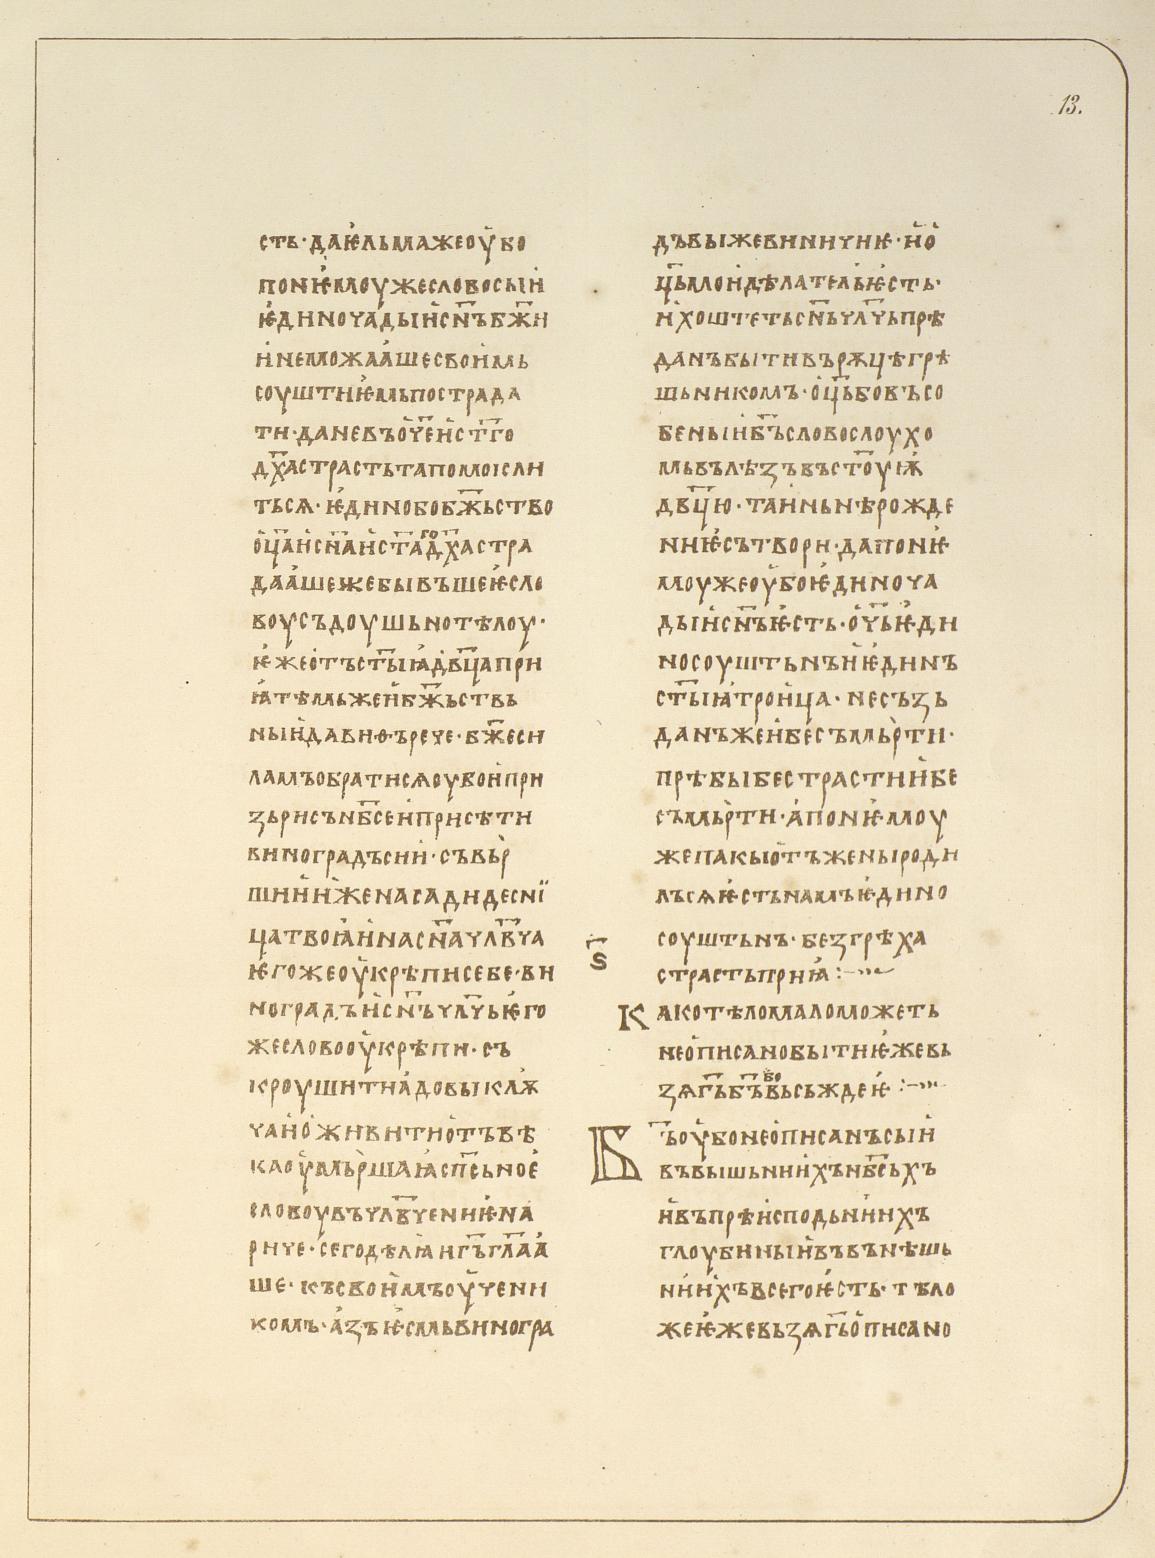 13.
сть· даѥльмажеоубо
понѥмоужесловосыи
ѥдиночадыисн҃ъбж҃и
инеможаашесвоимь
соуштиѥмьпострада
ти·даневъоч҃еист҃го
дх҃астрастьтапомоісли
ться· ѥдинобобж҃ьство
оц҃аисн҃аист҃аго дх҃астра
даашежебывъшеѥсло
воусъдоушьнотѣлоу·
ѥжеотъст҃ыꙗдв҃цапри
ꙗтѣмьжеибж҃ьствь
ныидавидърече· бж҃еси
ламъобратисѧоубоипри
зьрисън҃бсеиприсѣти
виноградъсии· съвьр
шииижена са дидесні
цатвоꙗинасн҃ачл҃вча
ѥгожеоукрѣписебе· ви
ноградъисн҃ъчл҃чьѥго
жесловооукрѣпи· съ
кроушитиадовыклѭ
чаиоживитиотъвѣ
каоумьршаꙗсп҃сьное
словоувъчл҃вчениѥна
риче· сегодѣлꙗиг҃ъгл҃аа
ше· къ своимъоучени
комъ· азъѥсмьвиногра
дъвыжевиничиѥ· ио
ц҃ьмоидѣлательѥсть·
ихоштетьсн҃ъчл҃чьпрѣ
данъбытивърѫцѣгрѣ
шьникомъ· оц҃ьбовъсо
беныиб҃ъсловослоухо
мьвълѣзъвъст҃оуѭ
дв҃цю· таиньнѣрожде
ниѥсътвори· дапонѥ
моужеоубоѥдиноча
дыисн҃ъѥсть· оч҃ьѥди
носоуштьнъиѥдинъ
ст҃ыꙗтроица· несъзь
данъжеибесъмьрти·
прѣбыбестрастиибе
съмьрти· апонѥмоу
жепакыотъженыроди
лъсѧѥстьнамъѥдино
соуштьнъ· безгрѣха
страстьприꙗ :~
ѕ҃
Какотѣломаломожеть
неописанобытиѥжевь
зѧг҃ьб҃ъво вьсьждеѥ :~
Б҃ъоубонеописанъсыи
въвышьниихън҃бсьхъ
ивъпрѣисподьниихъ
глоубиныивъвънѣшь
ниихъвсегоѥсть· тѣло
жеѥжевьзѧг҃ьописано